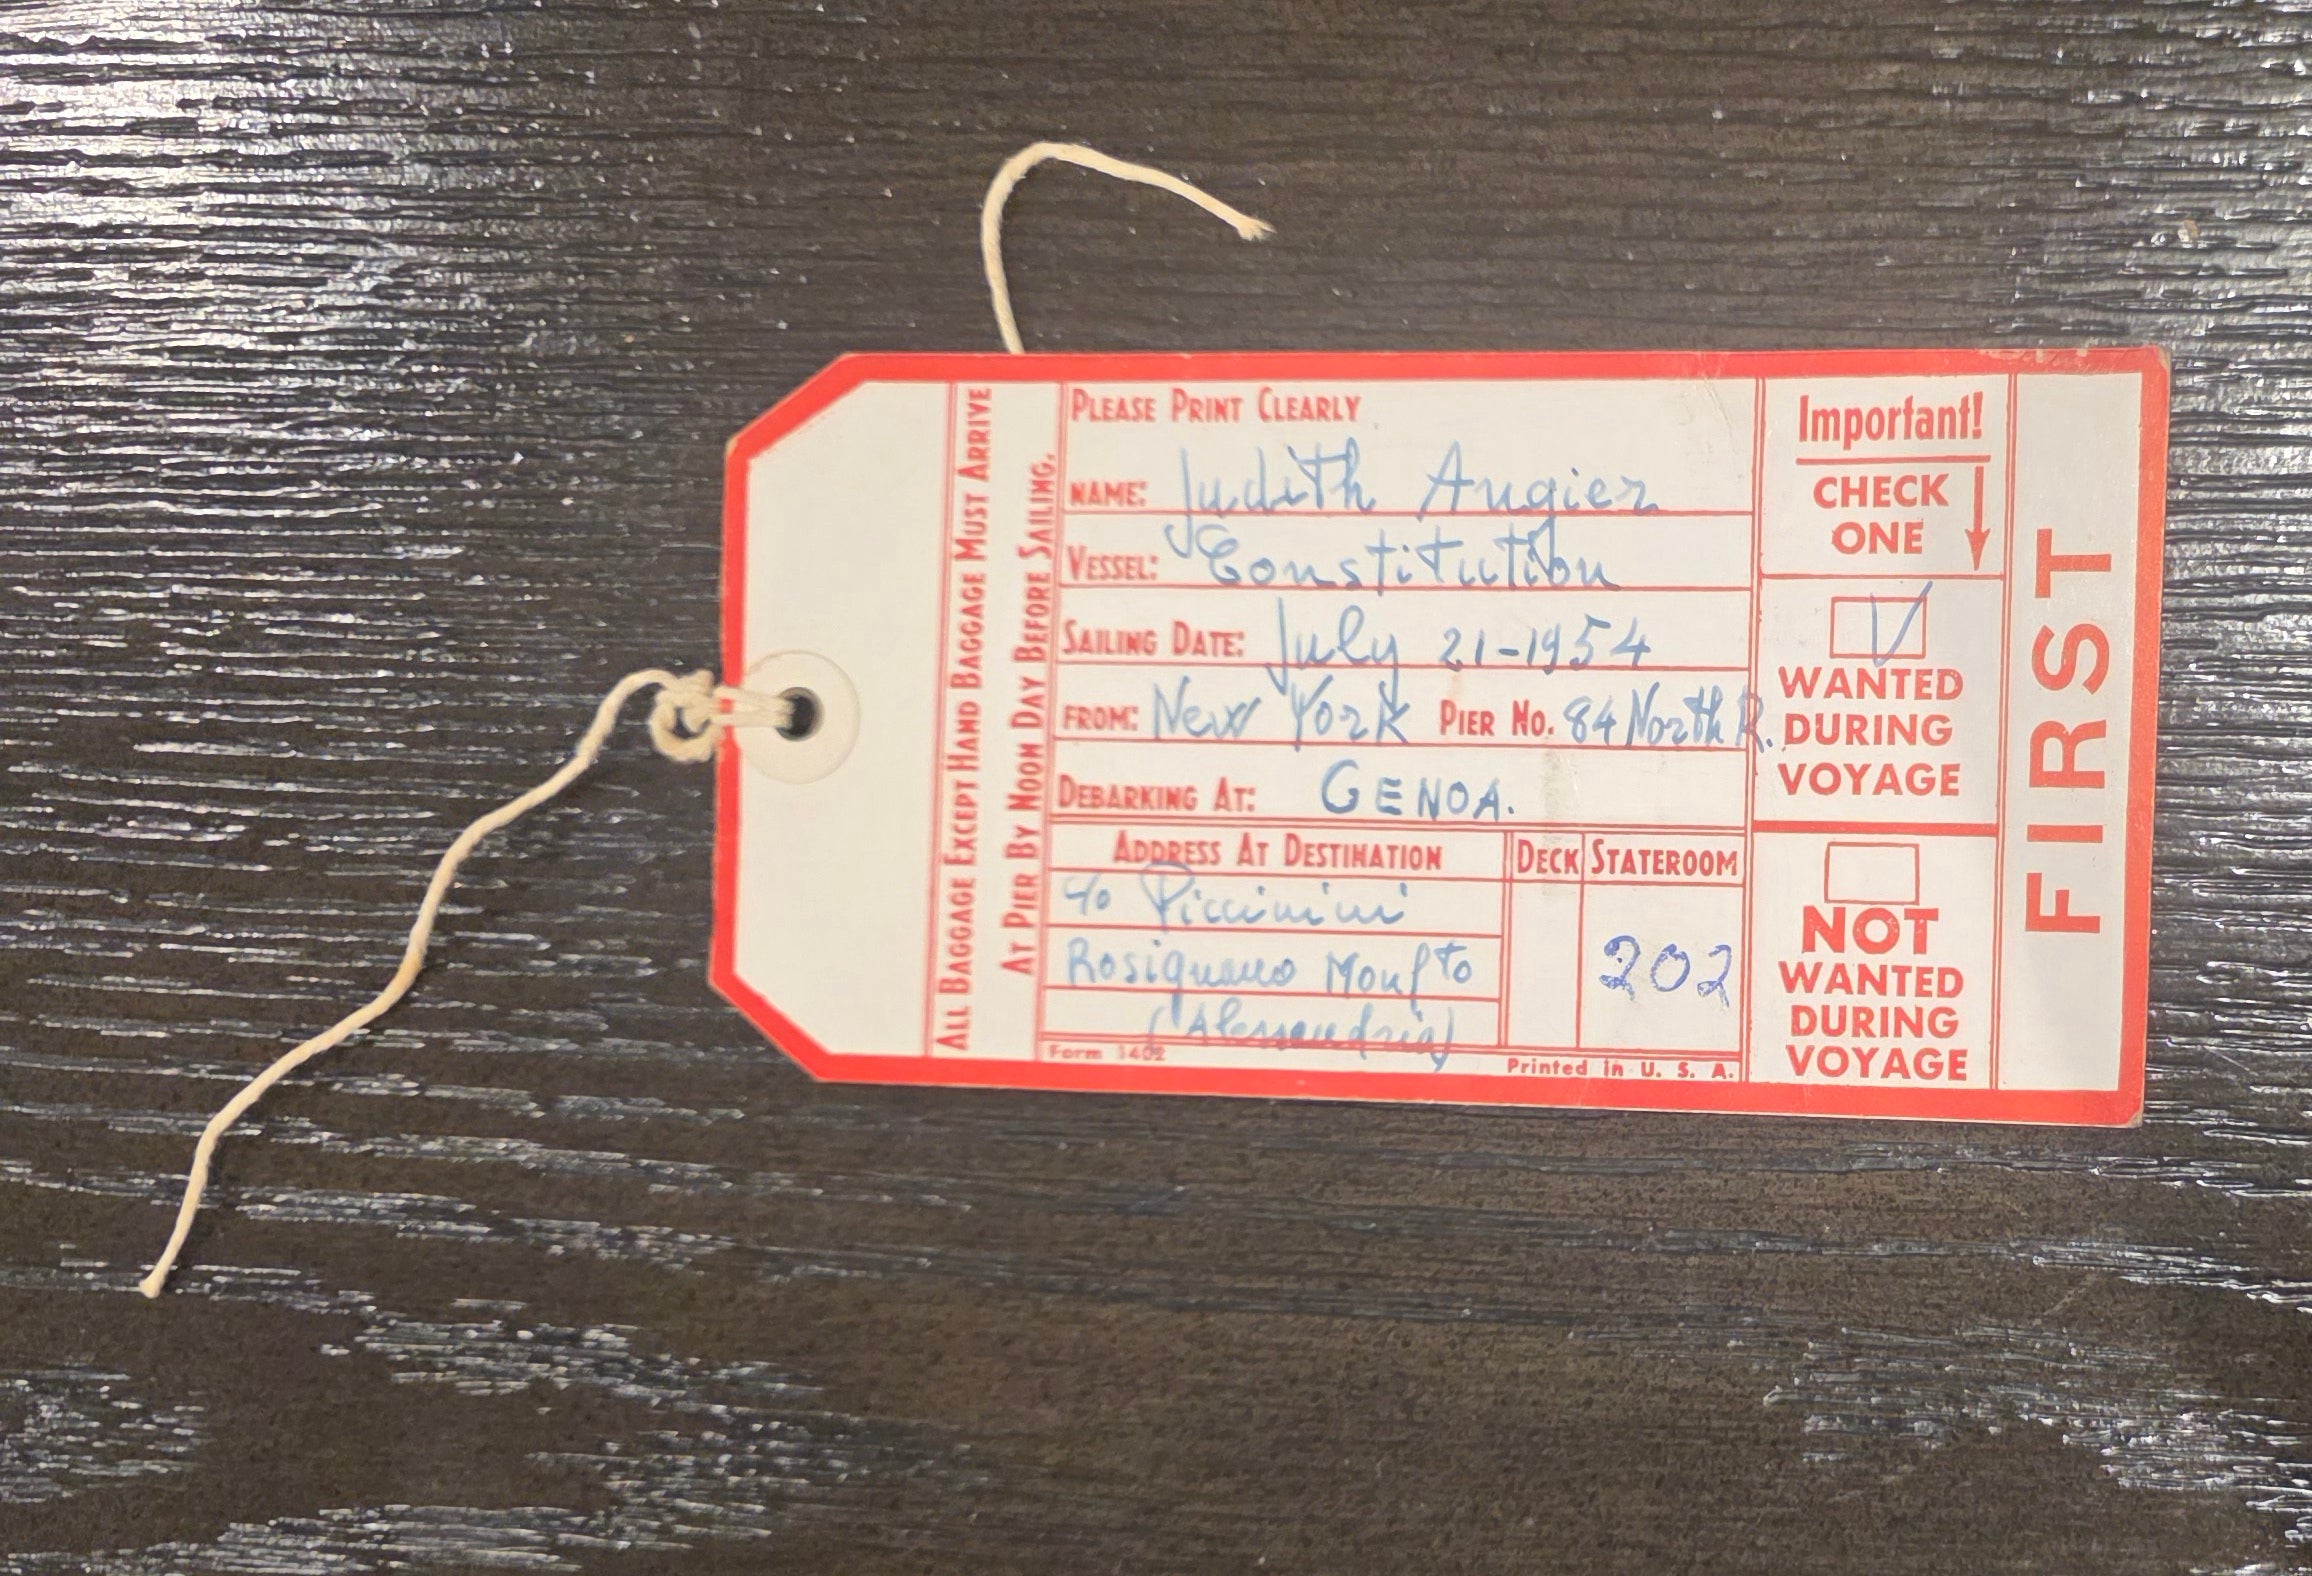 ALL BAGGAGE EXCEPT HAND BAGGAGE MUST ARRIVE
AT PIER BY NOON DAY BEFORE SAILING.
PLEASE PRINT CLEARLY
NAME: Judith Augier
VESSEL: Constitution
SAILING DATE: July 21-1954
FROM: New York PIER No. 84 North R.
DEBARKING AT: GENOA.
ADDRESS AT DESTINATION
c/o Piccinini
Rosignano Monfto
(Alessandria)
DECK
STATEROOM
202
Form 1402
Printed in U. S. A.
Important!
CHECK
ONE
WANTED
DURING
VOYAGE
NOT
WANTED
DURING
VOYAGE
FIRST